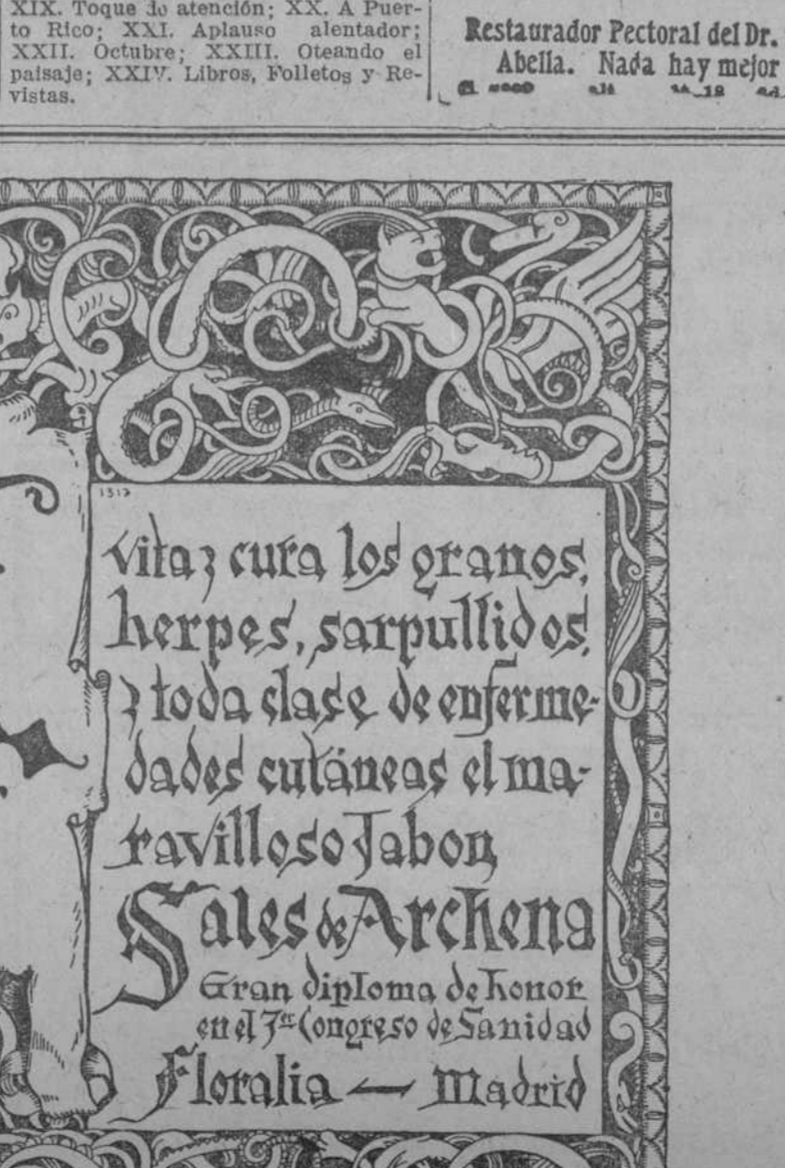 XIX. Toque de atención; XX. A Puer-
to Rico; XXI. Aplauso alentador;
XXII. Octubre; XXIII. Oteando el
paisaje; XXIV. Libros, Folletos y Re-
vistas.
Restaurador Pectoral del Dr.
Abella. Nada hay mejor
1317
vita y cura los granos,
herpes, sarpullidos,
y toda clase de enferme-
dades cutáneas el ma-
ravilloso Jabon
Sales de Archena
Gran diploma de honor
en el 3er Congreso de Sanidad
Floralia — Madrid